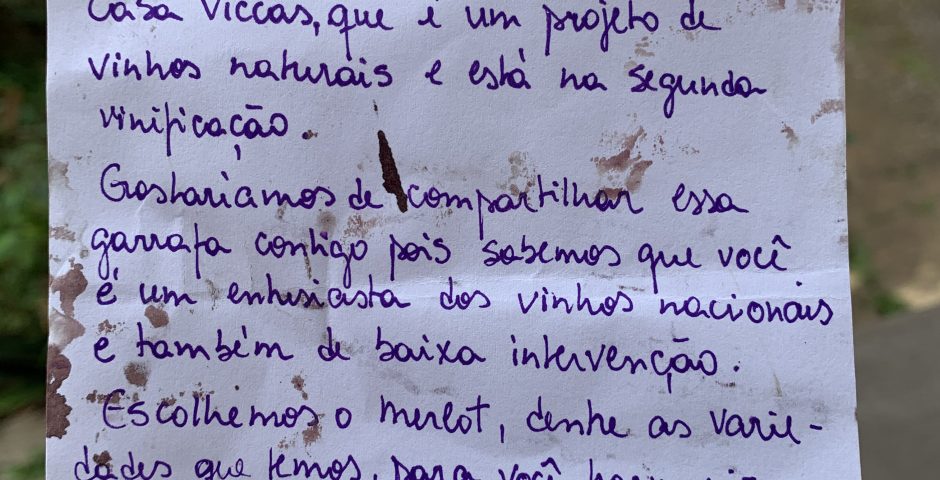 Casa Viccas, que é um projeto de
vinhos naturais e está na segunda
vinificação.
Gostaríamos de compartilhar essa
garrafa contigo pois sabemos que você
é um entusiasta dos vinhos nacionais
e também de baixa intervenção.
Escolhemos o merlot, dentre as varie-
dades que temos, para você